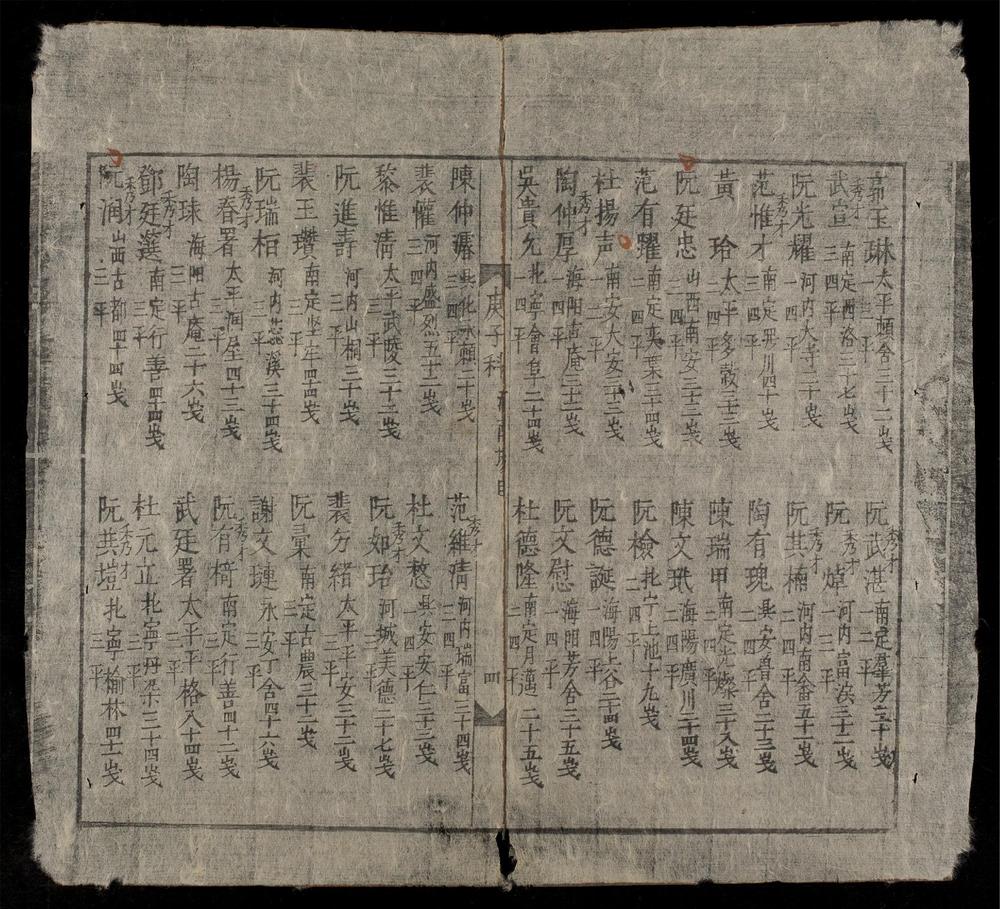 郭玉琳 太平穎舍三十二歲 一三平
武宣 秀才 南定西洛三十七歲 三四平
阮光耀 河内大寺二十歲 一四平
范惟才 秀才 南定 川四十歲 三四平
黃玲 太平多穀三十二歲 二四平
阮廷忠 山西南安三十二歲 二四平
范有躍 南定 葉三十四歲 二四平
杜揚声 南安大安三十三歲 一四平
陶仲厚 海陽古庵三十二歲 一四平
吳貴允 北寧會阜二十四歲 一四平
阮武湛 秀才 南定 芳三十歲 二平
阮焯 秀才 河内富 三十一歲 一三平
阮其楠 秀才 河内南畬五十一歲 二四平
陶有瑰 興安魯舍二十三歲 二四平
陳瑞甲 南定光燦三十八歲 二四平
陳文珉 海陽廣川二十四歲 二四平
阮檢 北宁上池十九歲 二四平
阮德誕 海陽上谷二十四歲 一四平
阮文慰 海陽芳舍二十五歲 一四平
杜德隆 南定月邁二十五歲 二四平
庚子科 河南
四
陳仲 興化 頴二十歲 三四平
裴惟 河内盛烈五十二歲 三四平
黎惟清 太平武陵三十二歲 三平
阮進壽 河内山桐三十歲 三平
裴玉瓚 南定 牢四十四歲 三平
阮瑞栢 河内蕊溪三十四歲 三平
楊春署 秀才 太平澗屋四十三歲 三平
陶球 海陽古庵二十六歲 三平
鄧廷選 秀才 南定行善四十四歲 三平
阮润 秀才 山西古都四十四歲 三平
范維清 秀才 河内瑞富三十四歲 三四平
杜文愁 興安安仁三十三歲 一四平
阮如珆 秀才 河城美德二十七歲 三平
裴分緒 太平平安三十二歲 三平
阮彙 南定古農三十二歲 三平
謝文璉 永安丁舍四十六歲 三平
阮有椅 秀才 南定行善四十二歲 三平
武廷署 太平平格八十四歲 三平
杜元立 北寧丹朵三十四歲 三平
阮其塏 秀才 北寧榆林四十一歲 三平